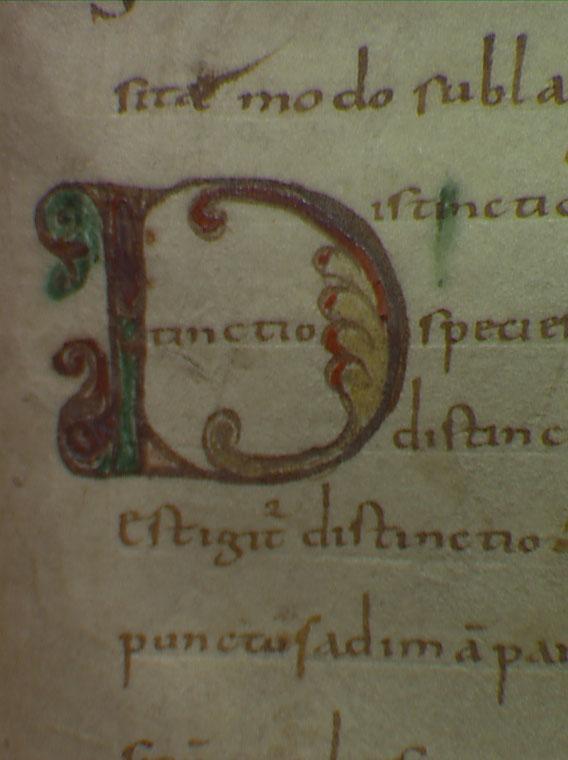 sitæ modo subla
Distinctio
tinctio species
distinc
est igit² distinctio
punctus ad imā par